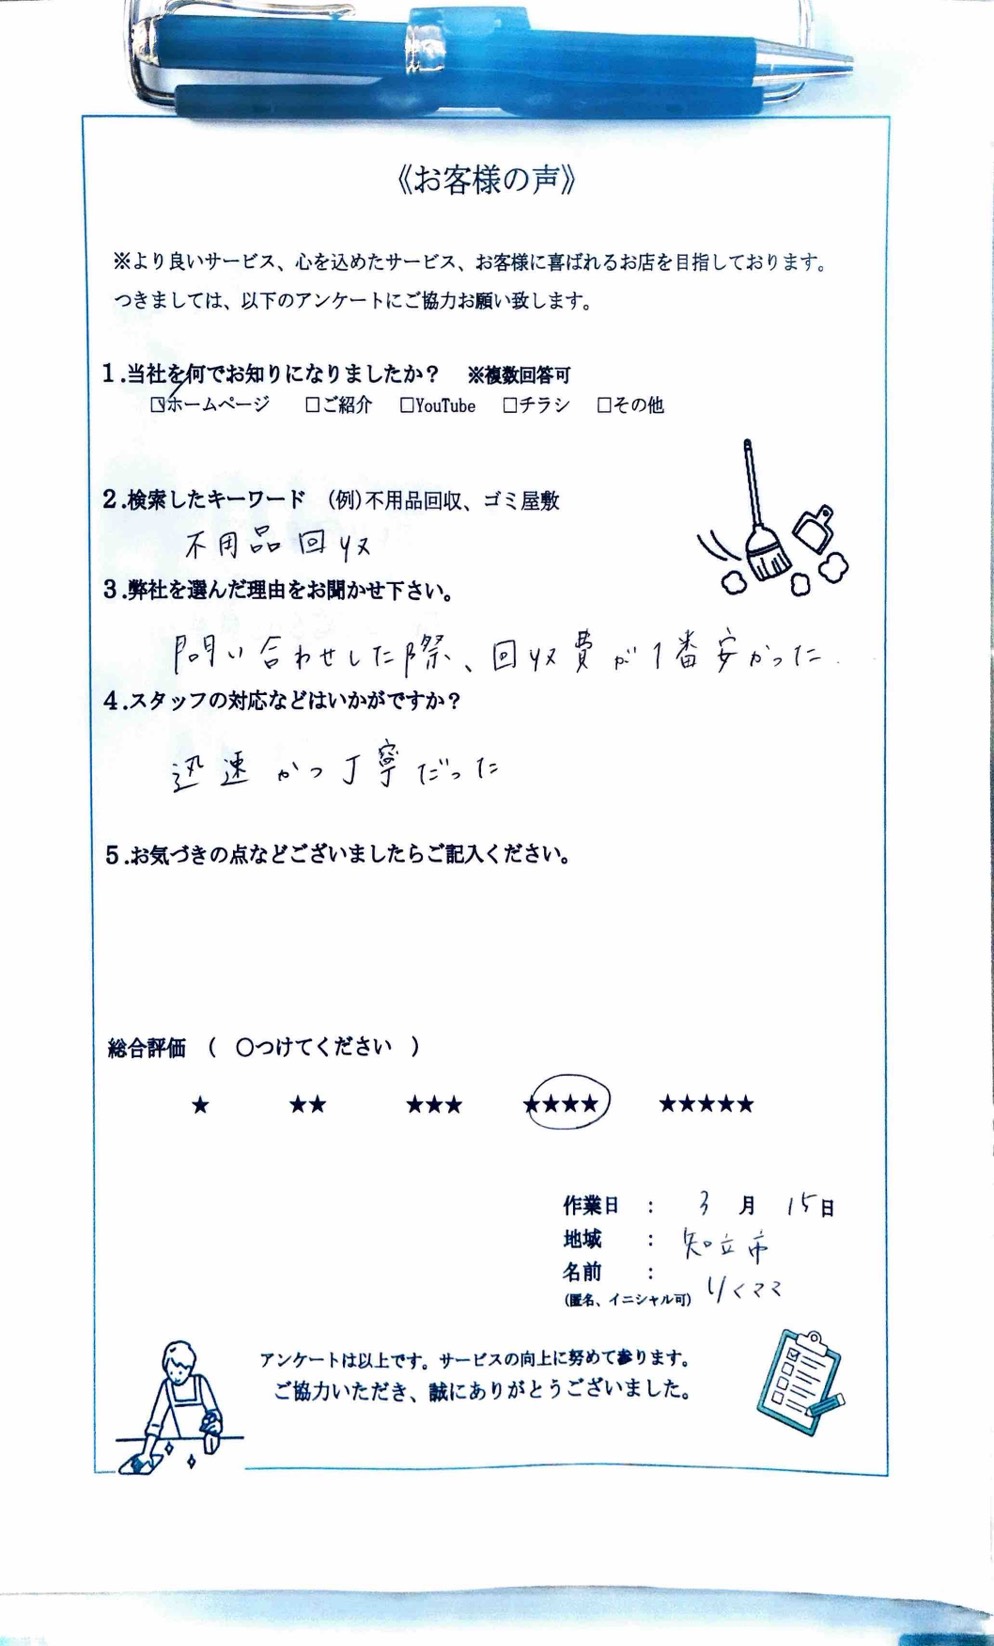 《お客様の声》
※より良いサービス、心を込めたサービス、お客様に喜ばれるお店を目指しております。
つきましては、以下のアンケートにご協力お願い致します。
1.当社を何でお知りになりましたか？ ※複数回答可
☑ホームページ □ご紹介 □YouTube □チラシ □その他
2.検索したキーワード （例）不用品回収、ゴミ屋敷
不用品回収
3.弊社を選んだ理由をお聞かせ下さい。
問い合わせした際、回収費が1番安かった.
4.スタッフの対応などはいかがですか？
迅速かつ丁寧だった
5.お気づきの点などございましたらご記入ください。
総合評価 （ ○つけてください ）
★ ★★ ★★★ ★★★★ ★★★★★
作業日 ： 3月 15日
地域 ： 知立市
名前 ：
(匿名、イニシャル可) りくママ
アンケートは以上です。サービスの向上に努めて参ります。
ご協力いただき、誠にありがとうございました。